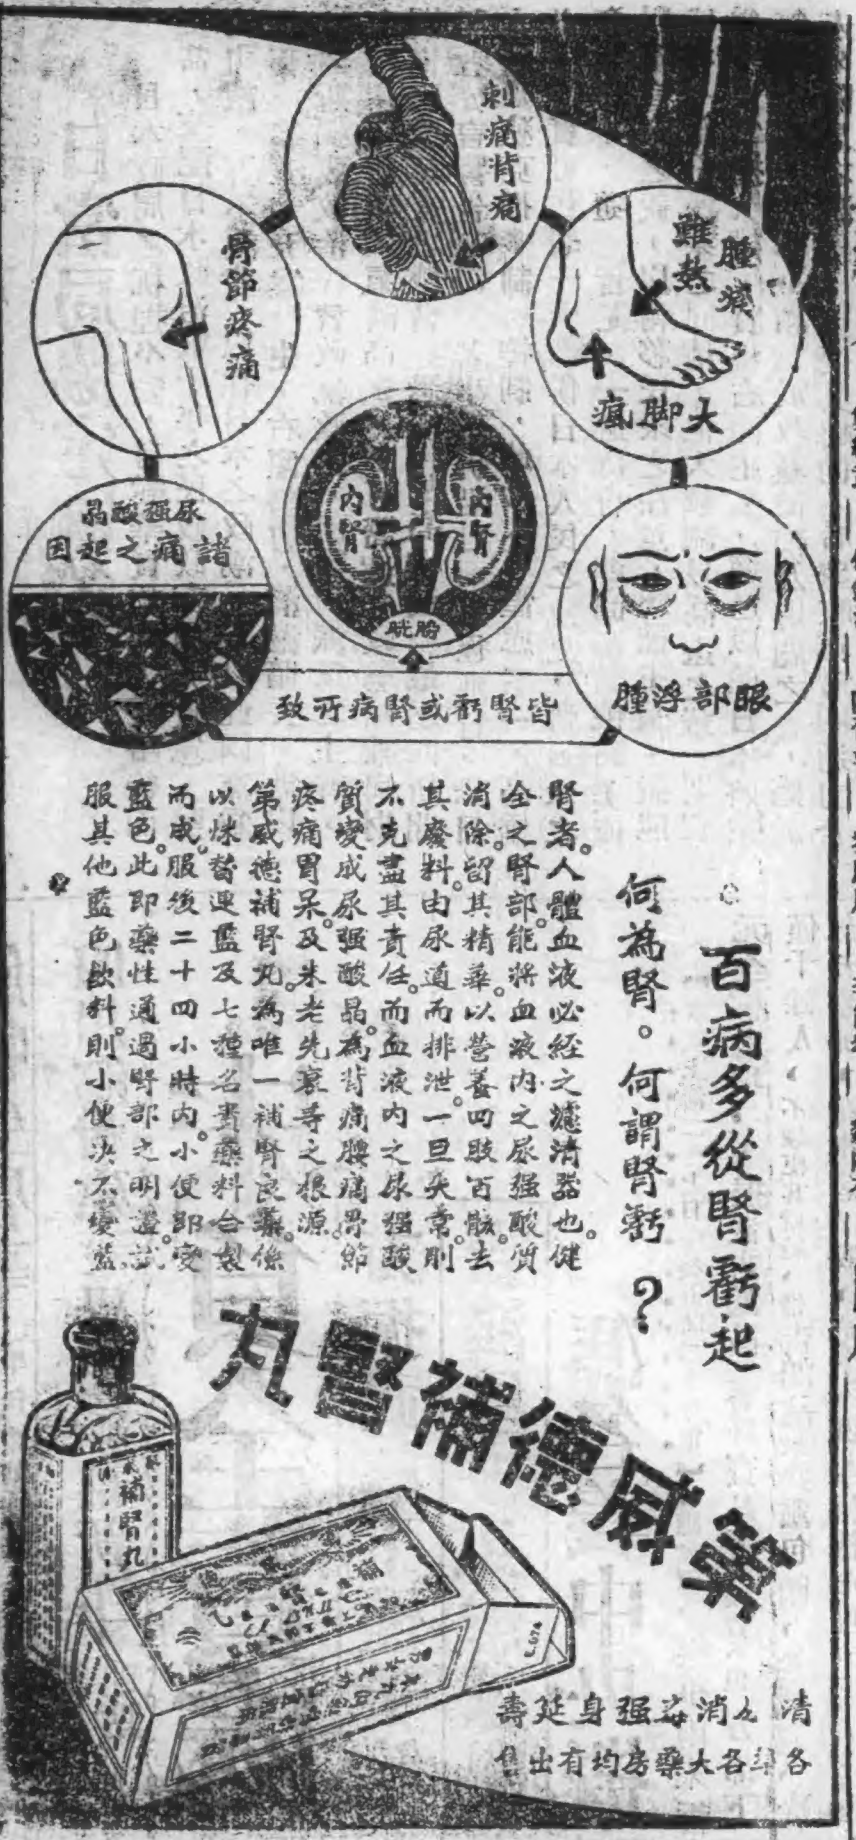 刺痛背痛
骨節疼痛
腫癀
難熬
大脚瘋
尿强酸晶
諸痛之起因
內腎
內腎
膀胱
眼部浮腫
皆腎虧或腎病所致
百病多從腎虧起
何為腎。何謂腎虧？
腎者。人體血液必經之濾清器也。健
全之腎部。能將血液內之尿强酸質
消除。留其精華。以營養四肢百骸。去
其廢料。由尿道而排泄。一旦失常。則
不克盡其責任。而血液內之尿强酸
質變成尿强酸晶。為背痛腰痛骨節
疼痛胃呆。及未老先衰等之根源。
第威德補腎丸。為唯一補腎良藥。係
以炑替連藍及七種名貴藥料合製
而成。服後二十四小時內。小便即變
藍色。此即藥性通過腎部之明證。試
服其他藍色飲料。則小便决不變藍
第威德補腎丸
補腎丸
E.674
清 消毒强身延壽
各 各大藥房均有出售